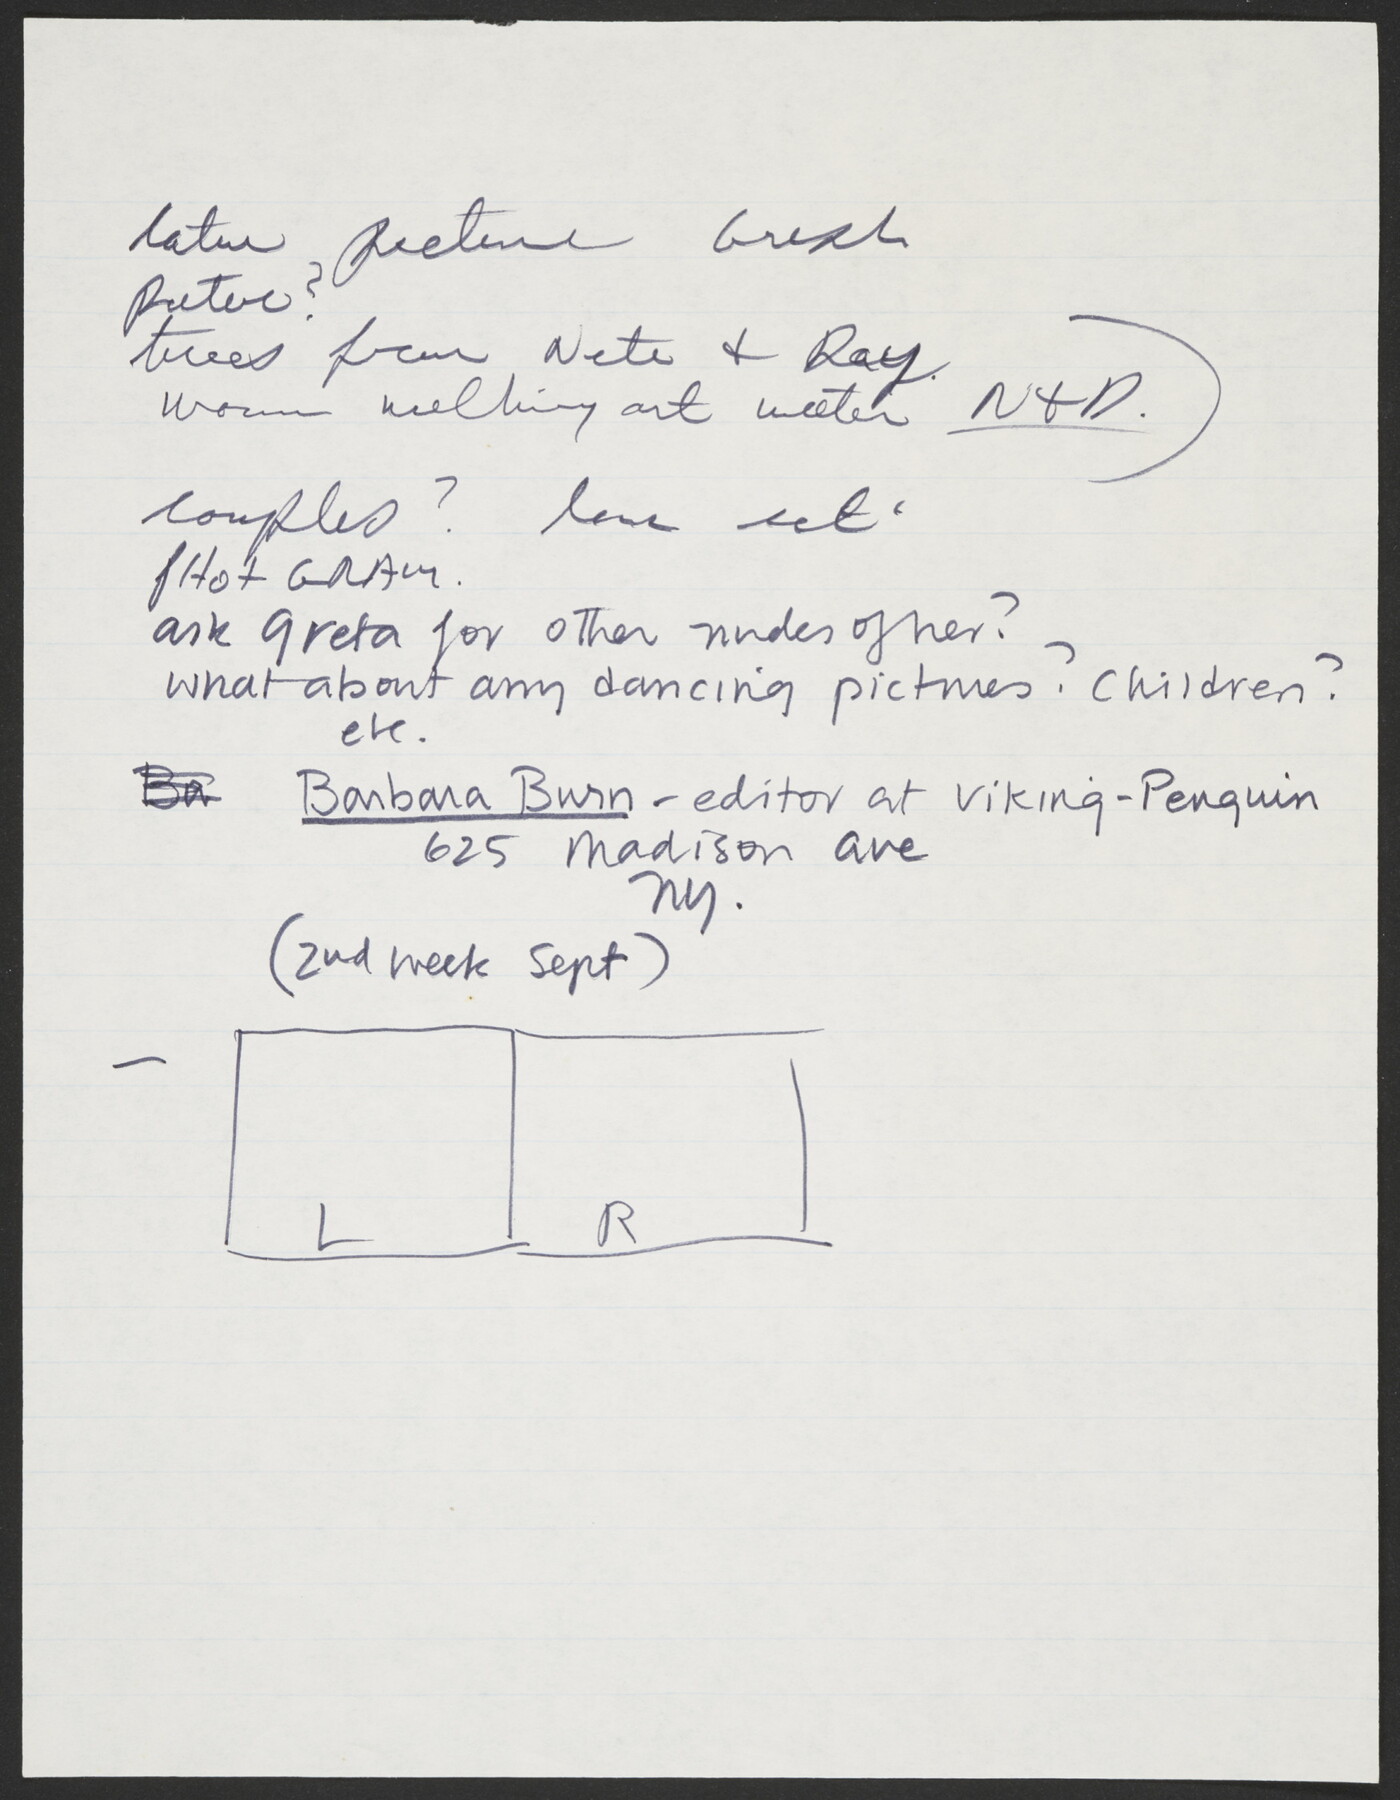 later picture
trees from Nete & Ray.
woman walking out water N & D.
couples? love set.
PHOTOGRAM.
ask Greta for other nudes of her?
what about any dancing pictures? Children?
etc.
Ba Barbara Burn - editor at Viking-Penguin
625 Madison ave
NY.
(2nd week Sept)
L R